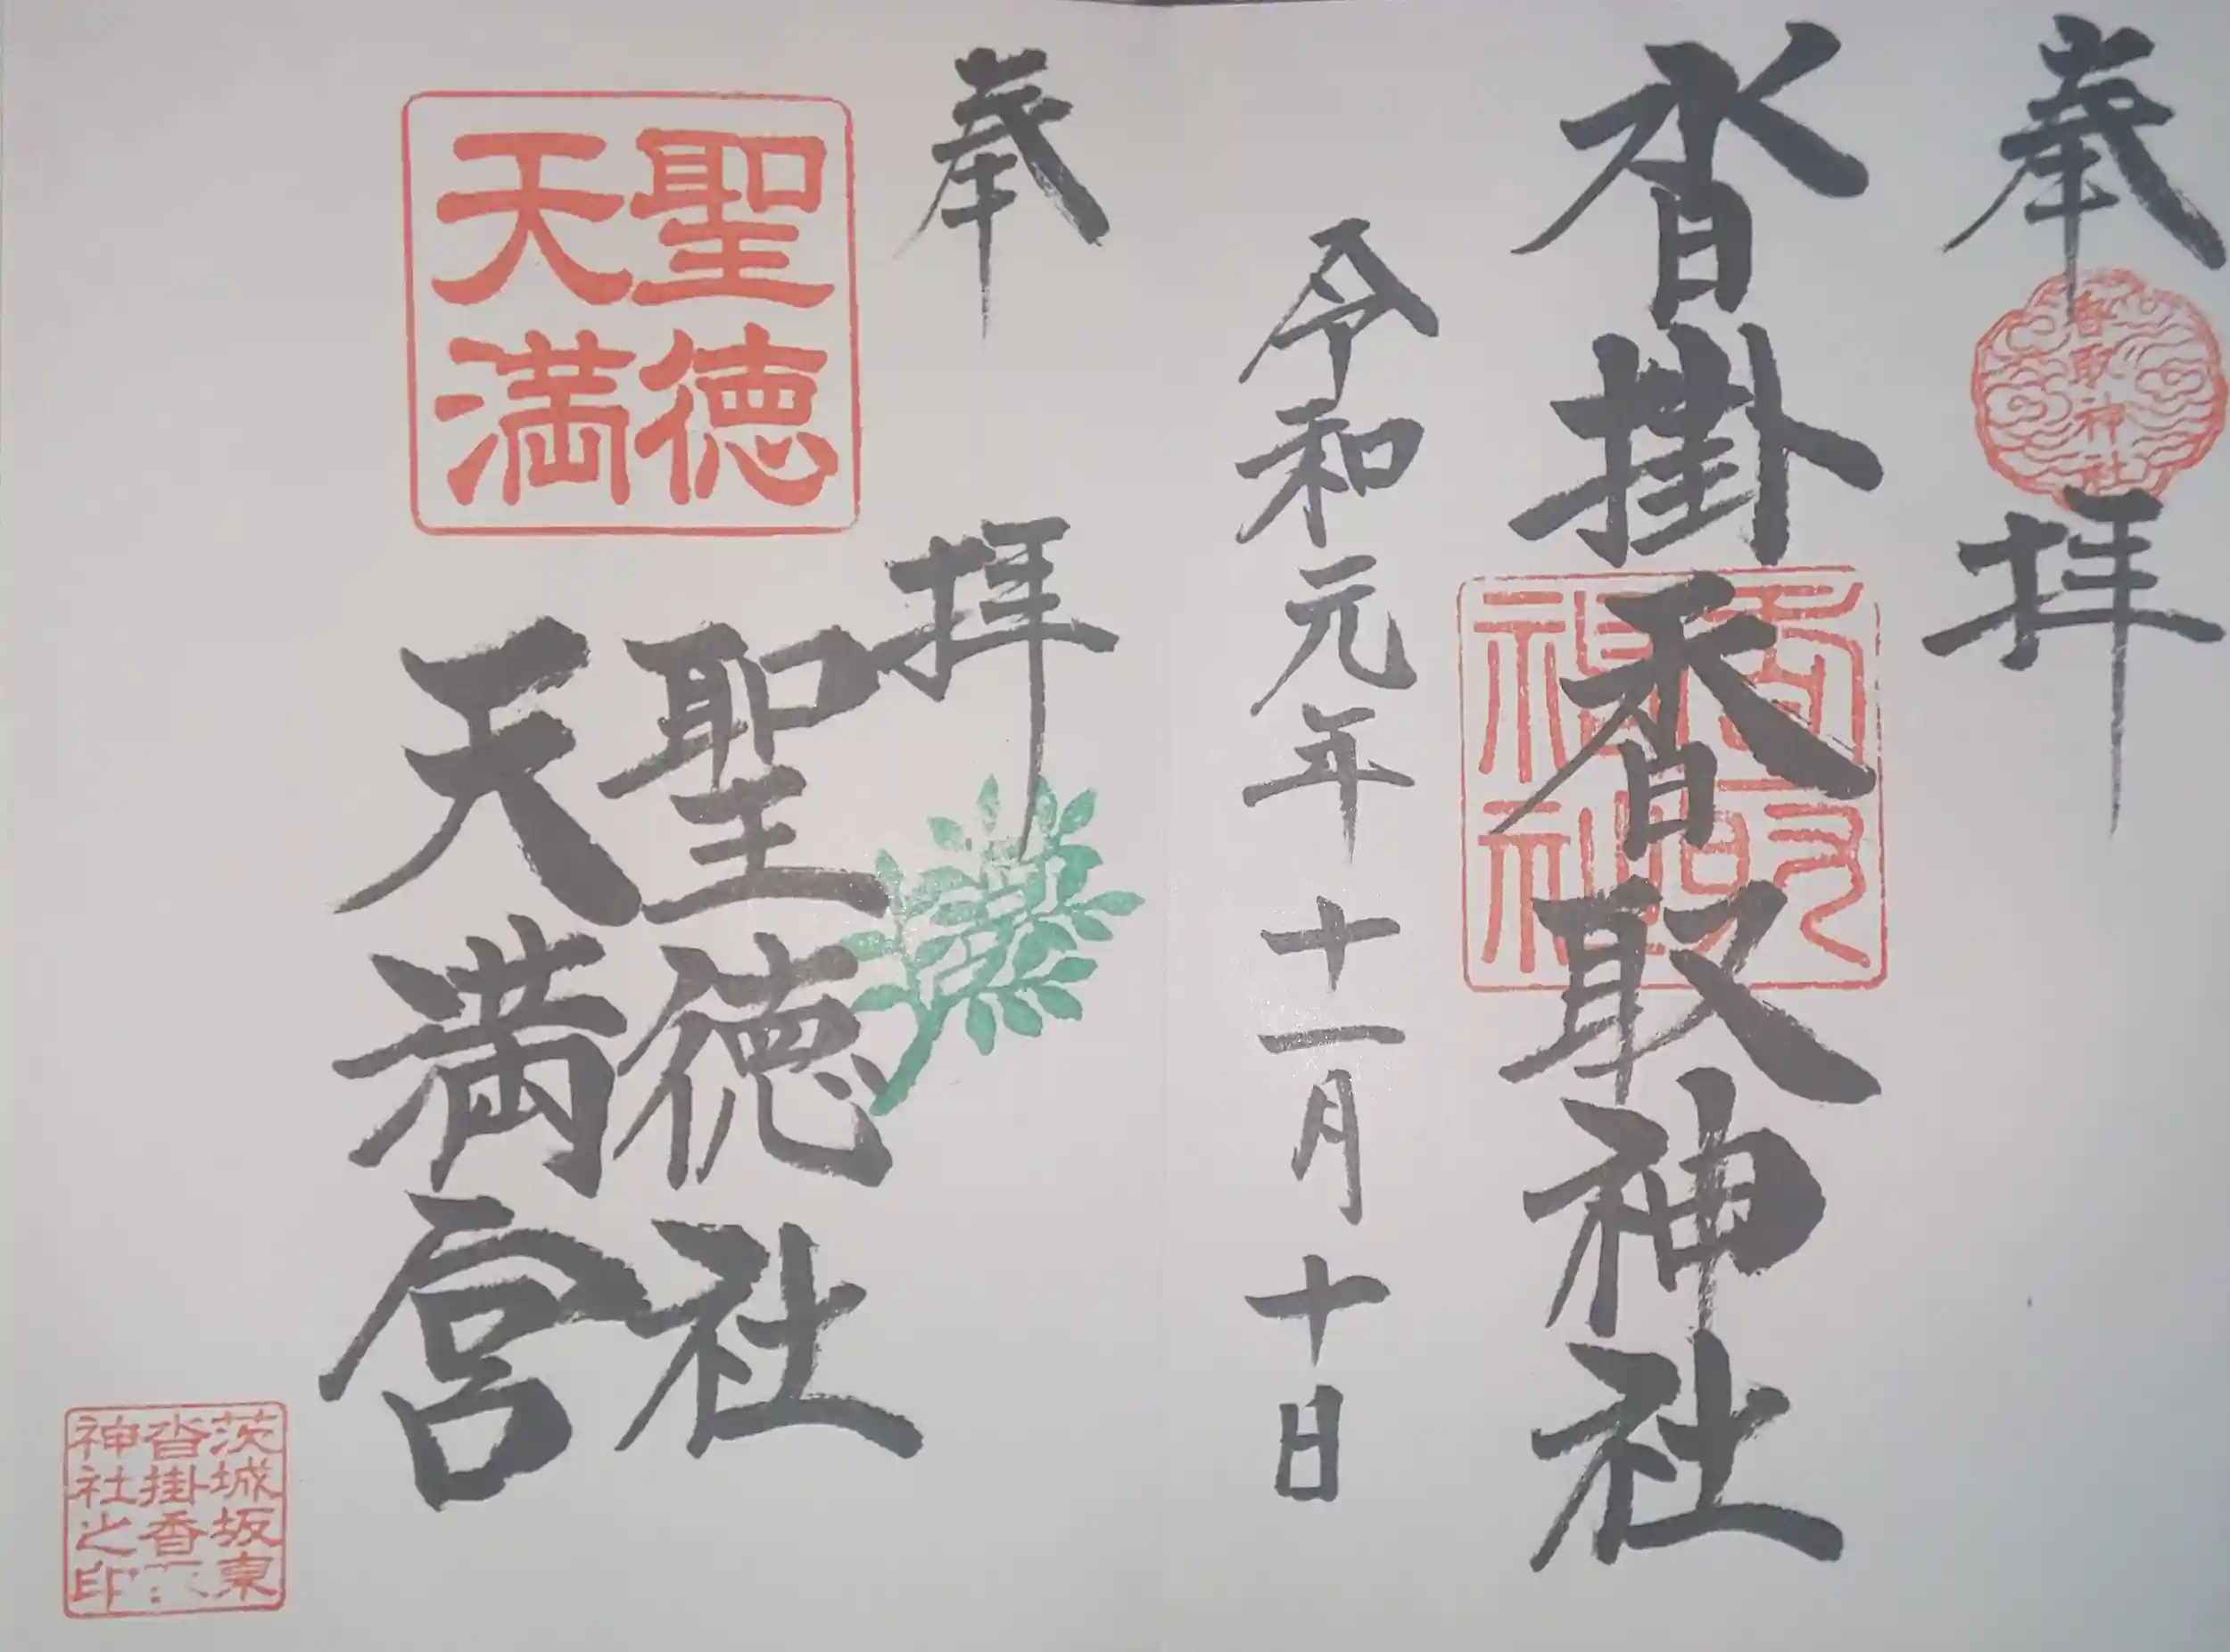 奉拝
香取神社
沓掛香取神社
香取神社
令和元年十一月十日
奉拝
聖徳
天満
聖徳社
天満宮
茨城坂東
沓掛香
神社之印